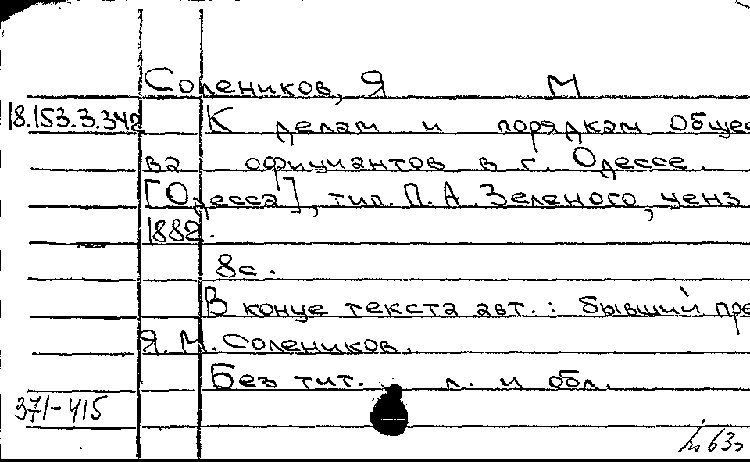 Солеников, Я М
18.153.3.342 К делам и порядкам Общес
ва официантов в г. Одессе.
[Одесса], тип. П.А. Зеленого, ценз
1882.
8с.
В конце текста авт.: бывший пре
Я.М. Солеников.
Без тит. л. и обл.
371-415
63